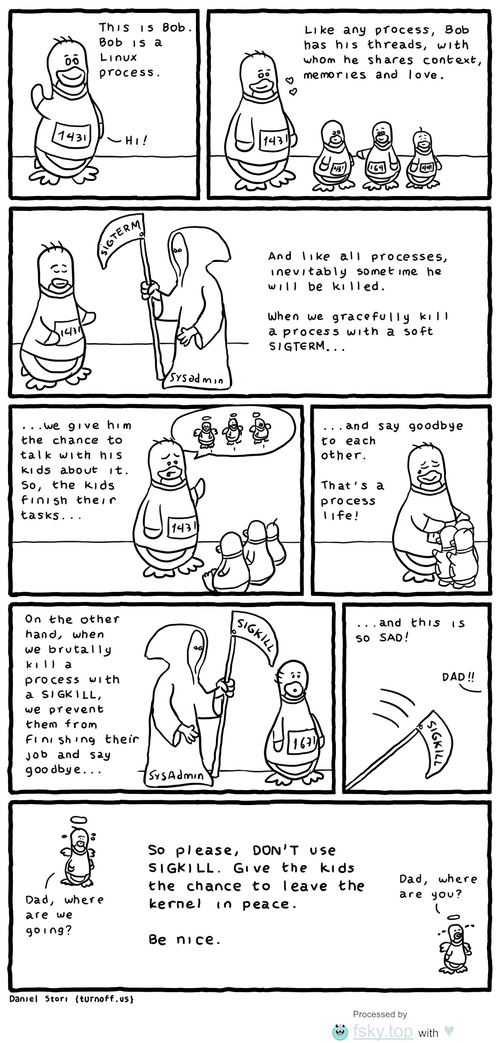 This is Bob.
Bob is a
Linux
process.
1431
Hi!
Like any process, Bob
has his threads, with
whom he shares context,
memories and love.
1431
SIGTERM
1431
SysAdmin
And like all processes,
inevitably sometime he
will be killed.
When we gracefully kill
a process with a soft
SIGTERM...
...we give him
the chance to
talk with his
kids about it.
So, the kids
finish their
tasks...
1431
...and say goodbye
to each
other.
That's a
process
life!
On the other
hand, when
we brutally
kill a
process with
a SIGKILL,
we prevent
them from
finishing their
job and say
goodbye...
SIGKILL
SysAdmin
1671
...and this is
so SAD!
DAD!!
SIGKILL
Dad, where
are we
going?
So please, DON'T use
SIGKILL. Give the kids
the chance to leave the
kernel in peace.
Be nice.
Dad, where
are you?
Daniel Stori {turnoff.us}
Processed by
fsky.top with ♥